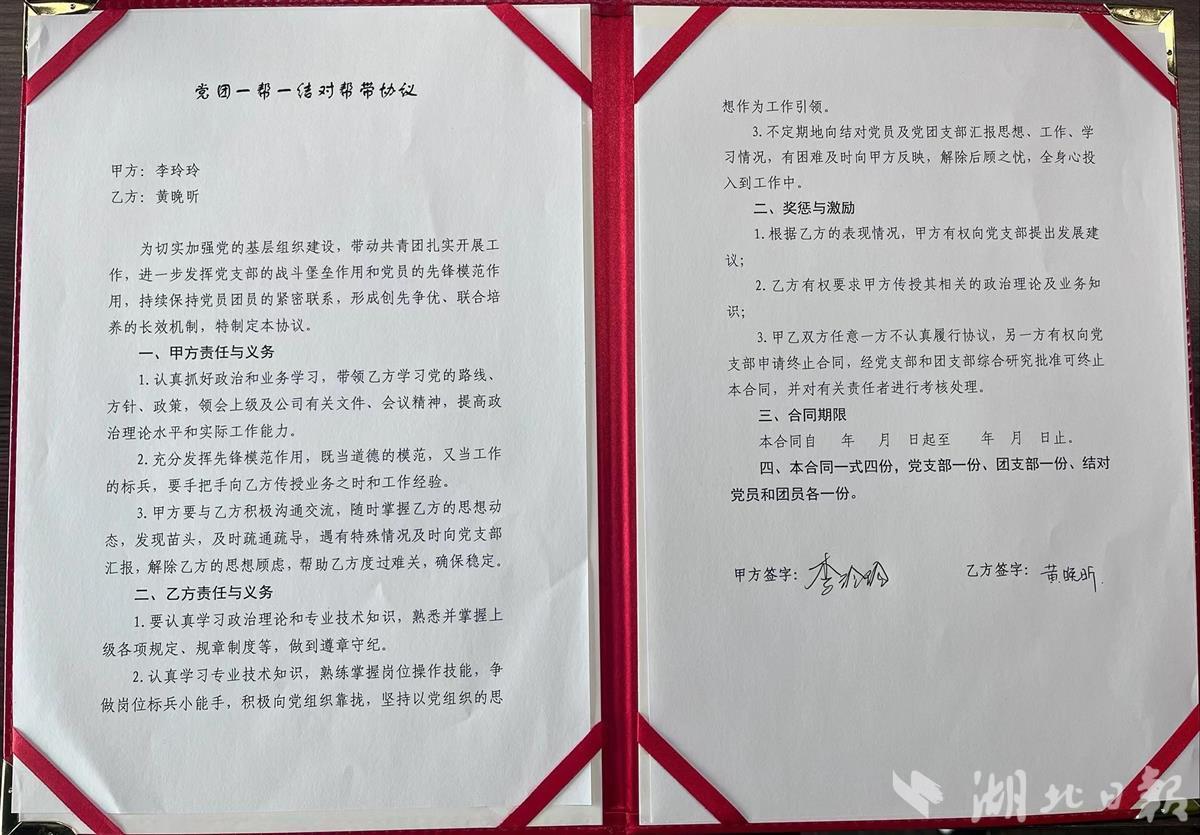 党团一帮一结对帮带协议
甲方：李玲玲
乙方：黄晚昕
为切实加强党的基层组织建设，带动共青团扎实开展工
作，进一步发挥党支部的战斗堡垒作用和党员的先锋模范作
用，持续保持党员团员的紧密联系，形成创先争优、联合培
养的长效机制，特制定本协议。
一、甲方责任与义务
1.认真抓好政治和业务学习，带领乙方学习党的路线、
方针、政策，领会上级及公司有关文件、会议精神，提高政
治理论水平和实际工作能力。
2.充分发挥先锋模范作用，既当道德的模范，又当工作
的标兵，要手把手向乙方传授业务之时和工作经验。
3.甲方要与乙方积极沟通交流，随时掌握乙方的思想动
态，发现苗头，及时疏通疏导，遇有特殊情况及时向党支部
汇报，解除乙方的思想顾虑，帮助乙方度过难关，确保稳定。
二、乙方责任与义务
1.要认真学习政治理论和专业技术知识，熟悉并掌握上
级各项规定、规章制度等，做到遵章守纪。
2.认真学习专业技术知识，熟练掌握岗位操作技能，争
做岗位标兵小能手，积极向党组织靠拢，坚持以党组织的思
想作为工作引领。
3.不定期地向结对党员及党团支部汇报思想、工作、学
习情况，有困难及时向甲方反映，解除后顾之忧，全身心投
入到工作中。
二、奖惩与激励
1.根据乙方的表现情况，甲方有权向党支部提出发展建
议；
2.乙方有权要求甲方传授其相关的政治理论及业务知
识；
3.甲乙双方任意一方不认真履行协议，另一方有权向党
支部申请终止合同，经党支部和团支部综合研究批准可终止
本合同，并对有关责任者进行考核处理。
三、合同期限
本合同自　年　月　日起至　年　月　日止。
四、本合同一式四份，党支部一份、团支部一份、结对
党员和团员各一份。
甲方签字：李玲玲
乙方签字：黄晚昕
湖北日報